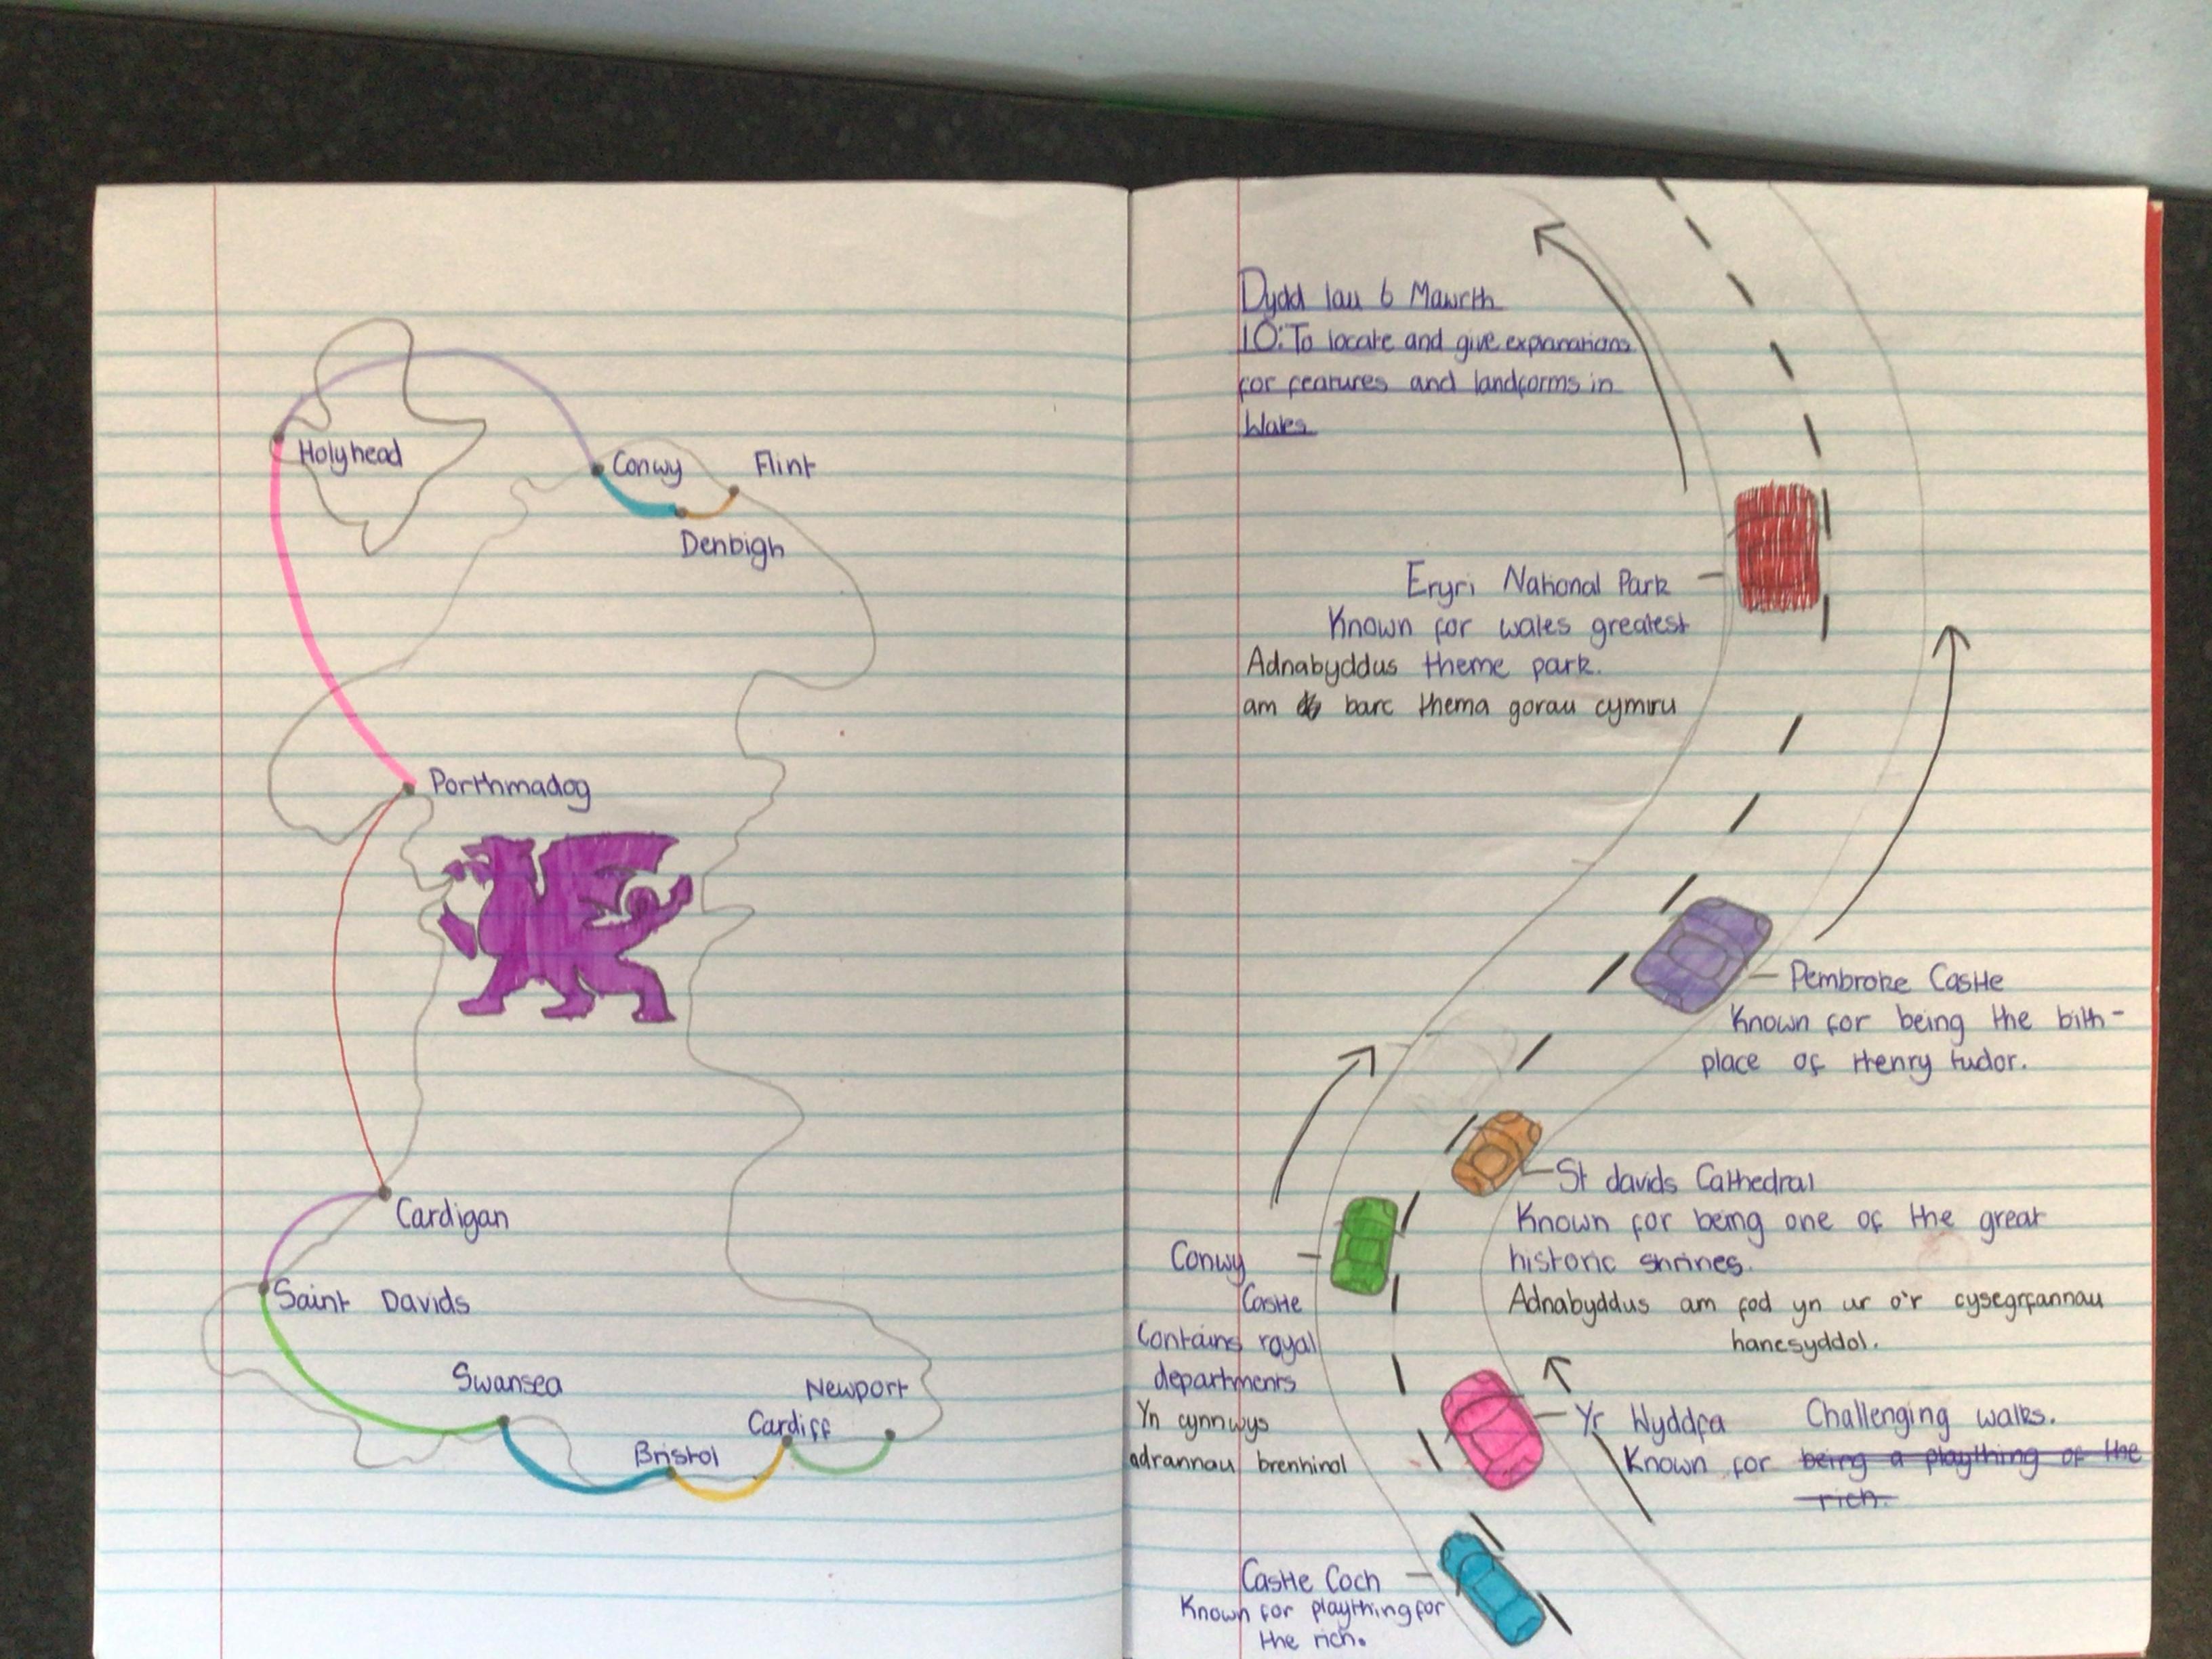 Holyhead
Conwy
Flint
Denbigh
Porthmadog
Cardigan
Saint Davids
Swansea
Newport
Cardiff
Bristol
Dydd Iau 6 Mawrth
IO: To locate and give explanations
for features and landforms in
Wales
Eryri National Park
Known for wales greatest
Adnabyddus theme park.
am barc thema gorau cymru
Pembroke Castle
Known for being the bith-
place of Henry tudor.
St davids Cathedral
Known for being one of the great
historic shrines.
Adnabyddus am fod yn ur o'r cysegrfannau
hanesyddol.
Conwy
Castle
Contains royal
departments
Yn cynnwys
adrannau brenhinol
Yr Wyddfa Challenging walks.
Known for being a plaything of the
rich.
Castle Coch
Known for plaything for
the rich.